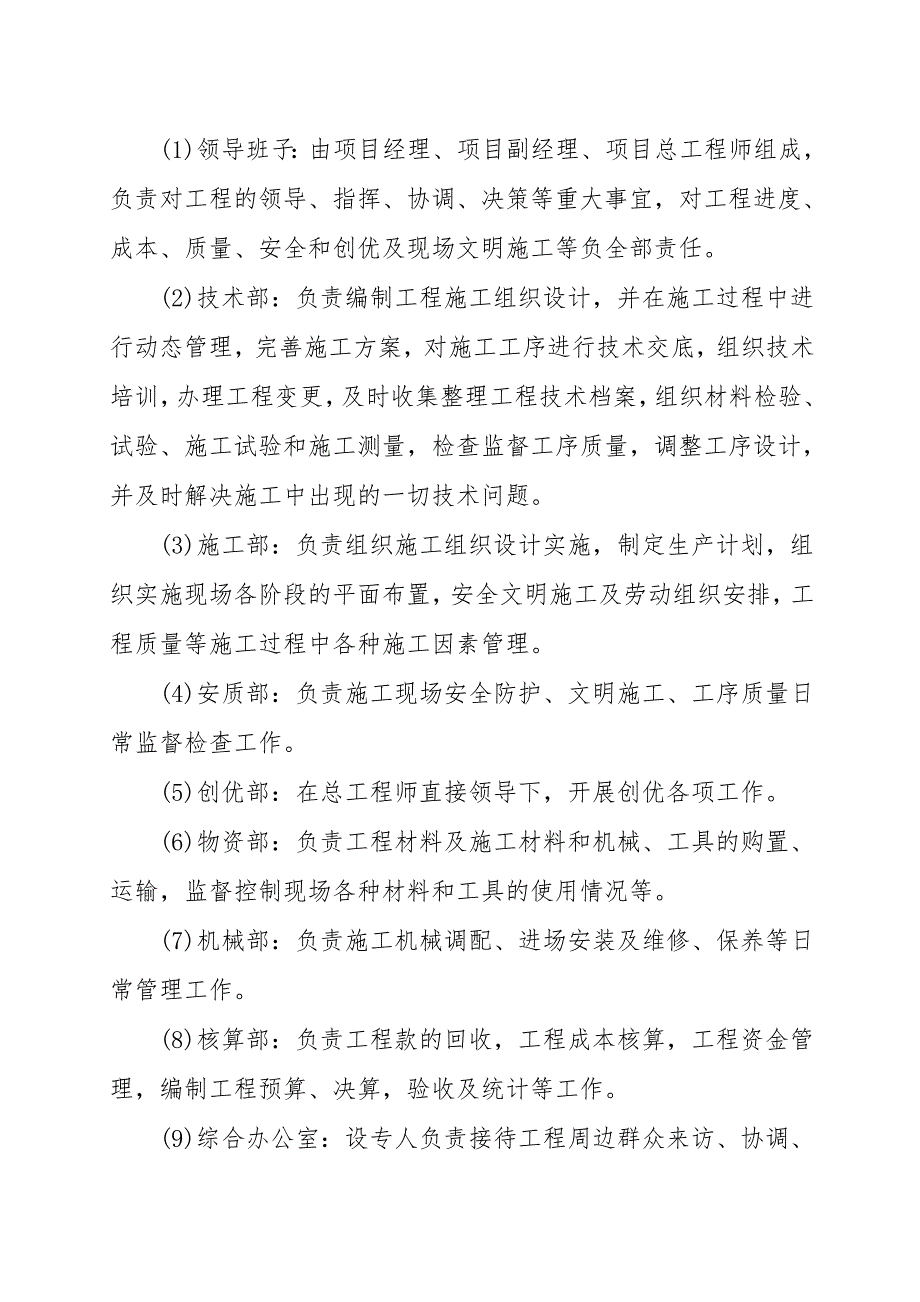 (1)领导班子：由项目经理、项目副经理、项目总工程师组成，
负责对工程的领导、指挥、协调、决策等重大事宜，对工程进度、
成本、质量、安全和创优及现场文明施工等负全部责任。
(2)技术部：负责编制工程施工组织设计，并在施工过程中进
行动态管理，完善施工方案，对施工工序进行技术交底，组织技术
培训，办理工程变更，及时收集整理工程技术档案，组织材料检验、
试验、施工试验和施工测量，检查监督工序质量，调整工序设计，
并及时解决施工中出现的一切技术问题。
(3)施工部：负责组织施工组织设计实施，制定生产计划，组
织实施现场各阶段的平面布置，安全文明施工及劳动组织安排，工
程质量等施工过程中各种施工因素管理。
(4)安质部：负责施工现场安全防护、文明施工、工序质量日
常监督检查工作。
(5)创优部：在总工程师直接领导下，开展创优各项工作。
(6)物资部：负责工程材料及施工材料和机械、工具的购置、
运输，监督控制现场各种材料和工具的使用情况等。
(7)机械部：负责施工机械调配、进场安装及维修、保养等日
常管理工作。
(8)核算部：负责工程款的回收，工程成本核算，工程资金管
理，编制工程预算、决算，验收及统计等工作。
(9)综合办公室：设专人负责接待工程周边群众来访、协调、